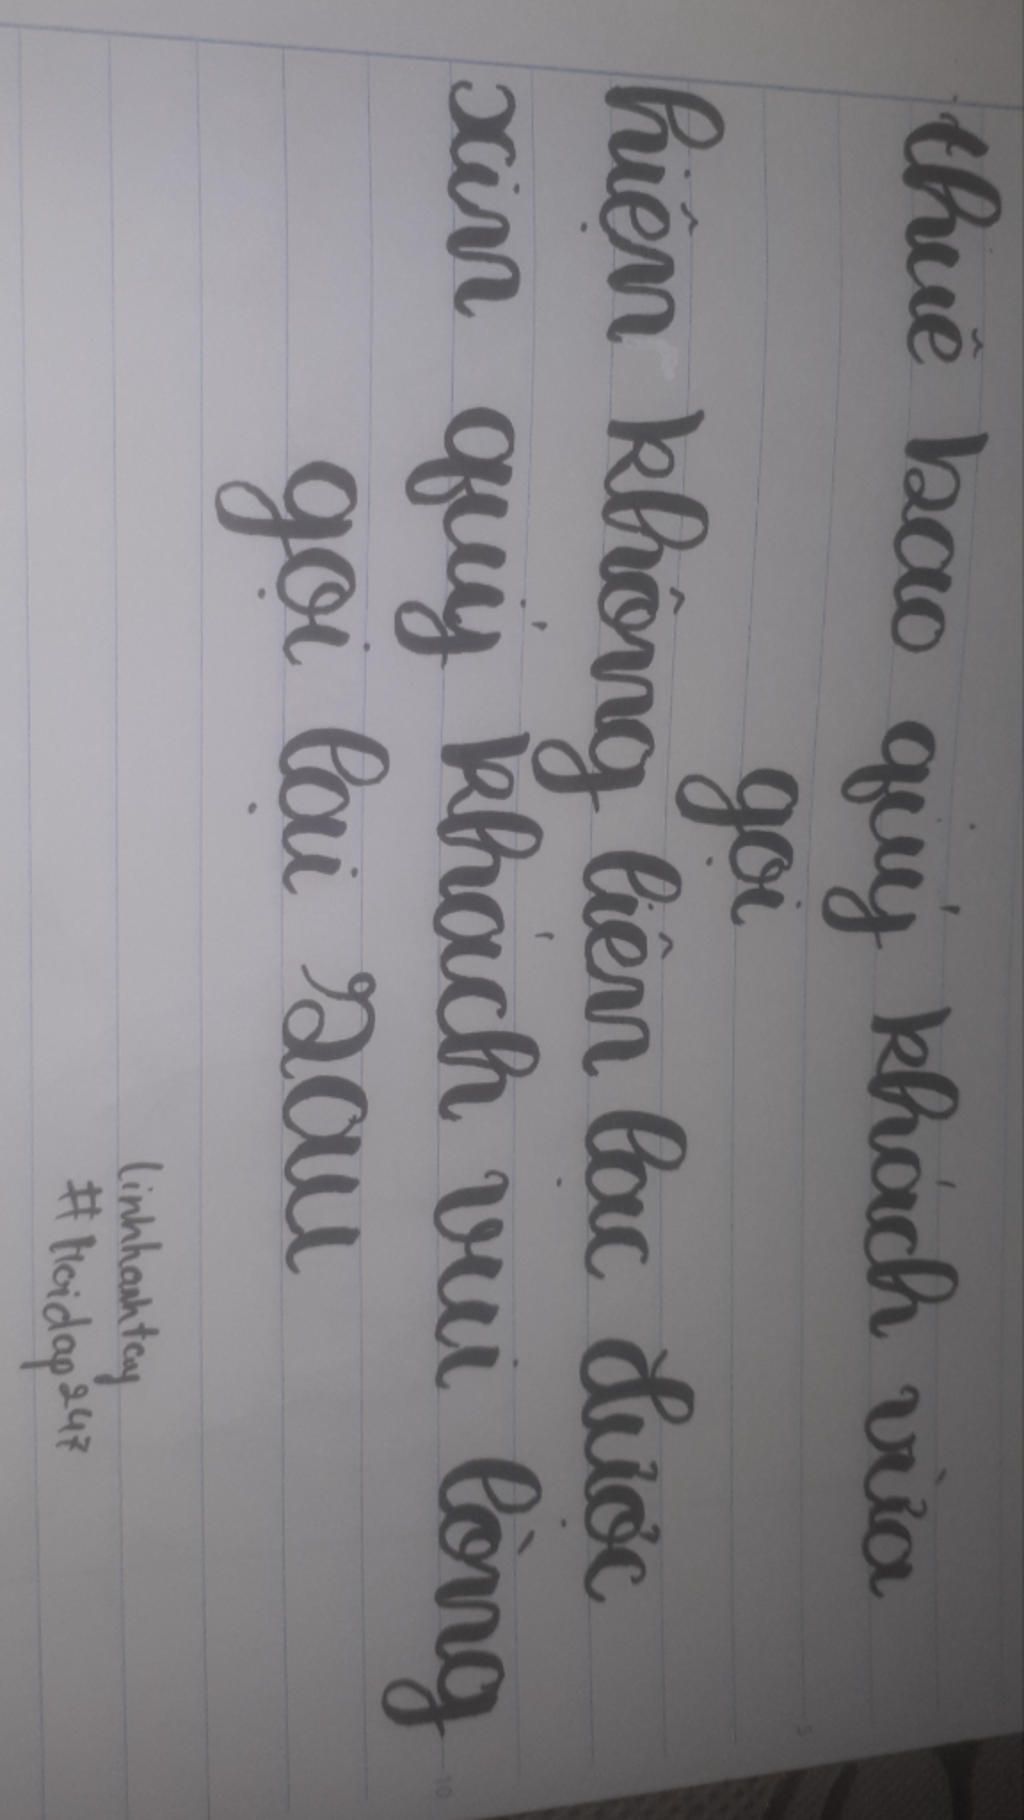 thuê bao quý khách vừa
gọi
hiện không liên lạc được
xin quý khách vui lòng
gọi lại sau
linhhanhtay
#Hoidap247
5
10